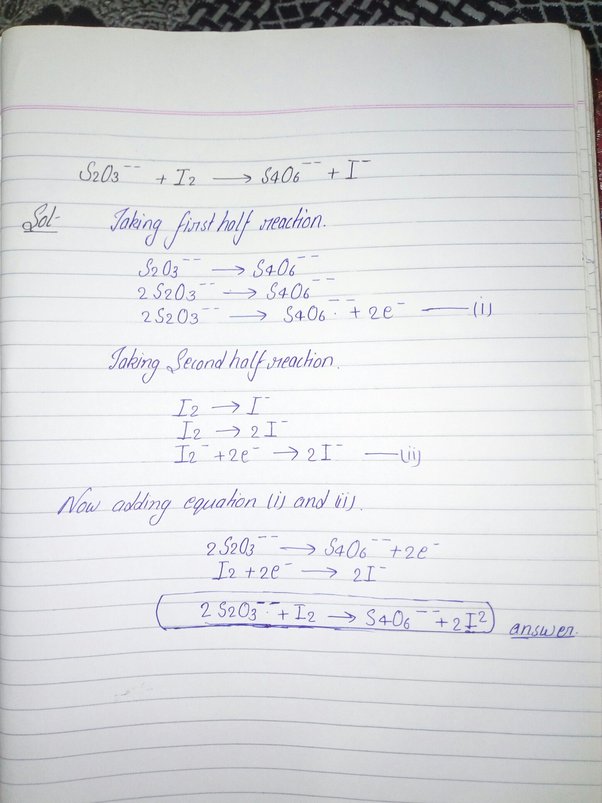 S2O3-- + I2 → S4O6-- + I-
Sol- Taking first half reaction.
S2O3-- → S4O6--
2S2O3-- → S4O6--
2S2O3-- → S4O6-- + 2e- —(i)
Taking Second half reaction.
I2 → I-
I2 → 2I-
I2- + 2e- → 2I- —(ii)
Now adding equation (i) and (ii).
2S2O3-- → S4O6-- + 2e-
I2 + 2e- → 2I-
2S2O3-- + I2 → S4O6-- + 2I2 answer.